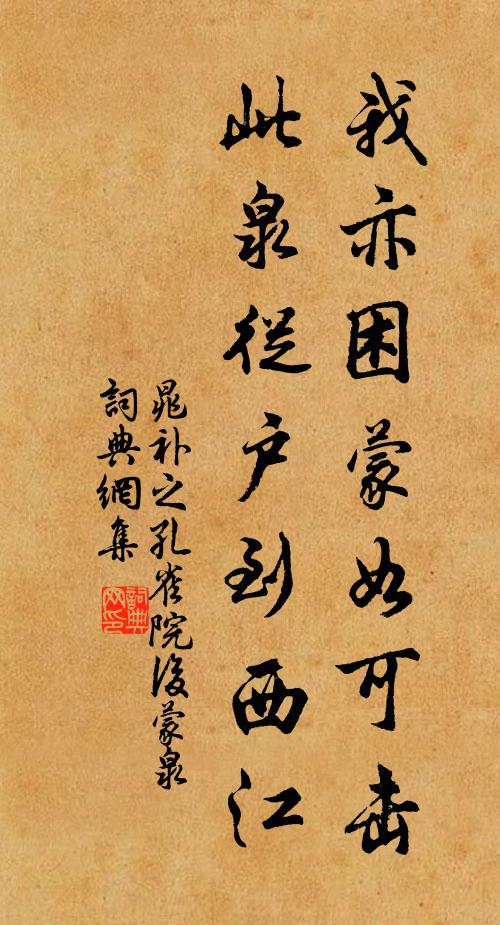 我亦困蒙如可击
此泉從户到西江
晁补之孔雀院後蒙泉
詞典網集
詞典网印